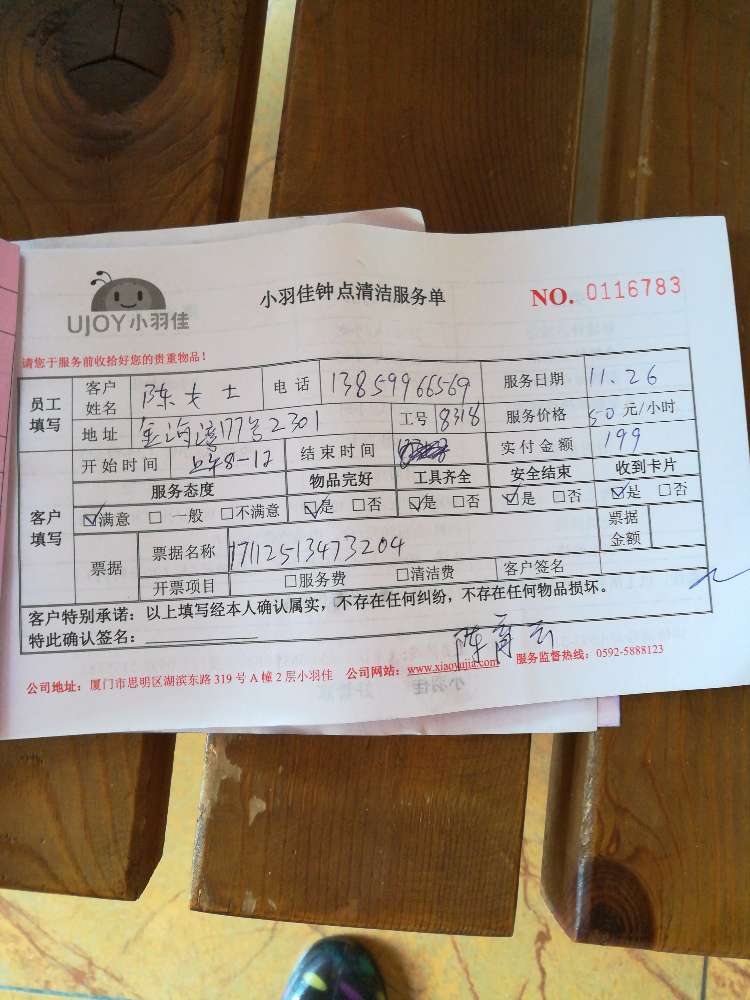 UJOY小羽佳
小羽佳钟点清洁服务单
NO. 0116783
请您于服务前收拾好您的贵重物品！
员工填写 客户姓名 陈女士 电话 13859966569 服务日期 11.26
地址 金海湾177号2301 工号 8318 服务价格 50元/小时
开始时间 上午8-12 结束时间 实付金额 199
客户填写 服务态度 物品完好 工具齐全 安全结束 收到卡片
☑满意 □一般 □不满意 ☑是 □否 ☑是 □否 ☑是 □否 ☑是 □否
票据 票据名称 17112513473204 票据金额
开票项目 □服务费 □清洁费 客户签名
客户特别承诺：以上填写经本人确认属实，不存在任何纠纷，不存在任何物品损坏。
特此确认签名：
公司地址：厦门市思明区湖滨东路 319 号 A 幢 2 层小羽佳 公司网站：www.xiaoyujia.com 服务监督热线：0592-5888123